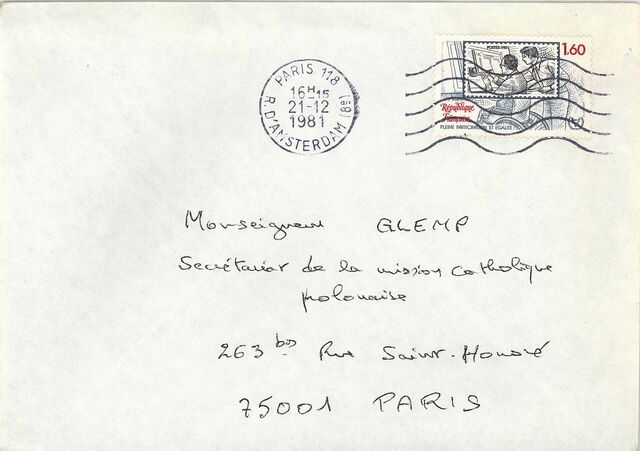 PARIS 118
16H15
21-12
1981
R. D'AMSTERDAM (8E)
POSTES 1981
1.60
République
Française
PLEINE PARTICIPATION ET EGALITE
Monseigneur GLEMP
Secrétariat de la mission catholique
polonaise
263 bis Rue Saint-Honoré
75001 PARIS